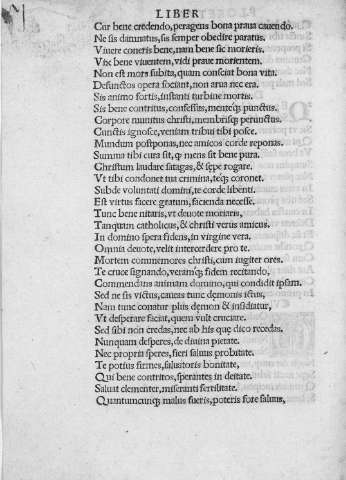 LIBER
Cor bene credendo, peragens bona praua cauendo.
Ne sis damnatus, sis semper obedire paratus.
Viuere coneris bene, nam bene sic morieris.
Vix bene viuentem, vidi praue morientem.
Non est mors subita, quam consciat bona vita.
Defunctos opera sociant, non arua nec era.
Sis animo fortis, instanti turbine mortis.
Sis bene contritus, confessus, menteq; punctus.
Corpore munitus christi, membrisq; perunctus.
Cunctis ignosce, veniam tribui tibi posce.
Mundum postponas, nec amicos corde reponas.
Summa tibi cura sit, ꝙ mens sit bene pura.
Christum laudare satagas, & sepe rogare.
Vt tibi condonet tua crimina, teq; coronet.
Subde voluntati domini, te corde libenti.
Est virtus facere gratum, facienda necesse.
Tunc bene nitaris, vt deuote moriaris,
Tanquam catholicus, & christi verus amicus.
In domino spera fidens, in virgine vera.
Omnia deuote, velit intercedere pro te.
Mortem commemores christi, cum iugiter ores.
Te cruce signando, veramq; fidem recitando,
Commendans animam domino, qui condidit ipsam.
Sed ne sis victus, caueas tunc demonis ictus,
Nam tunc conatur plus demon & insidiatur,
Vt desperare faciat, quem vult cruciare.
Sed sibi non credas, nec ab his que dico recedas.
Nunquam desperes, de diuina pietate.
Nec propria speres, fieri saluus probitate.
Te potius firmes, saluatoris bonitate,
Qui bene contritos, sperantes in deitate.
Saluat clementer, miseranti fertilitate.
Quantumcunq; malus fueris, poteris fore saluus,